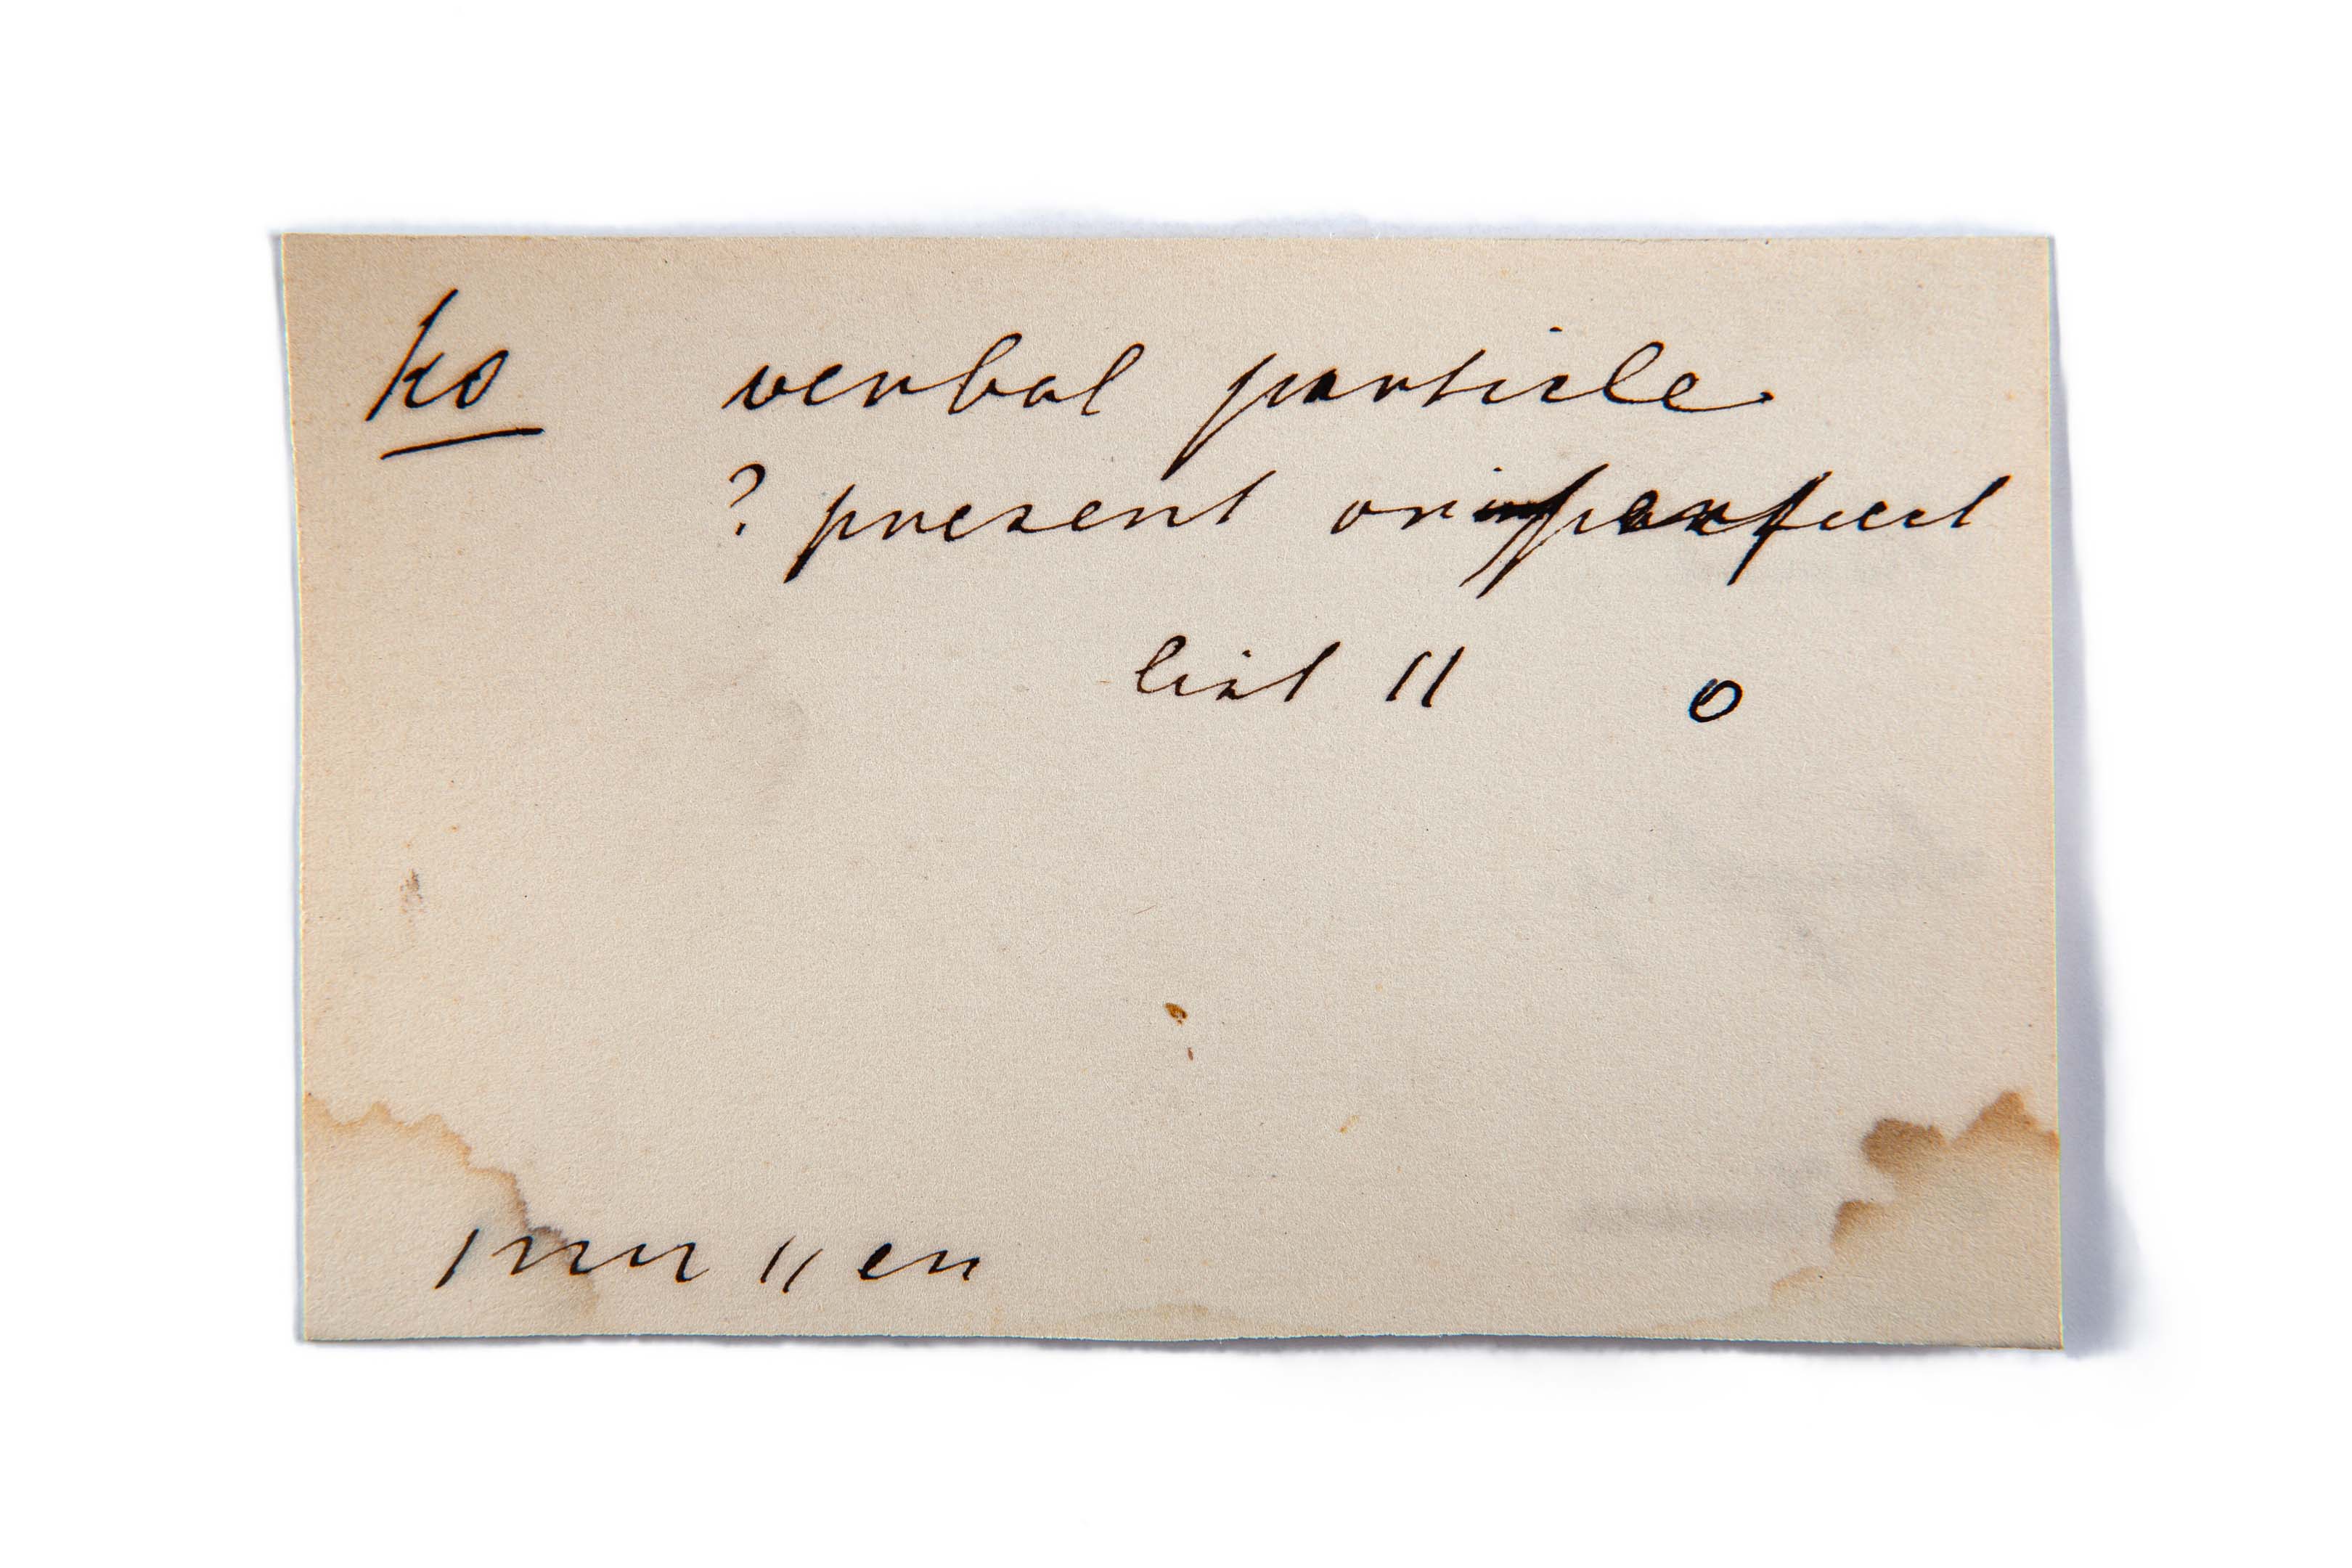 ko verbal particle
? present or imperfect
list 11 O